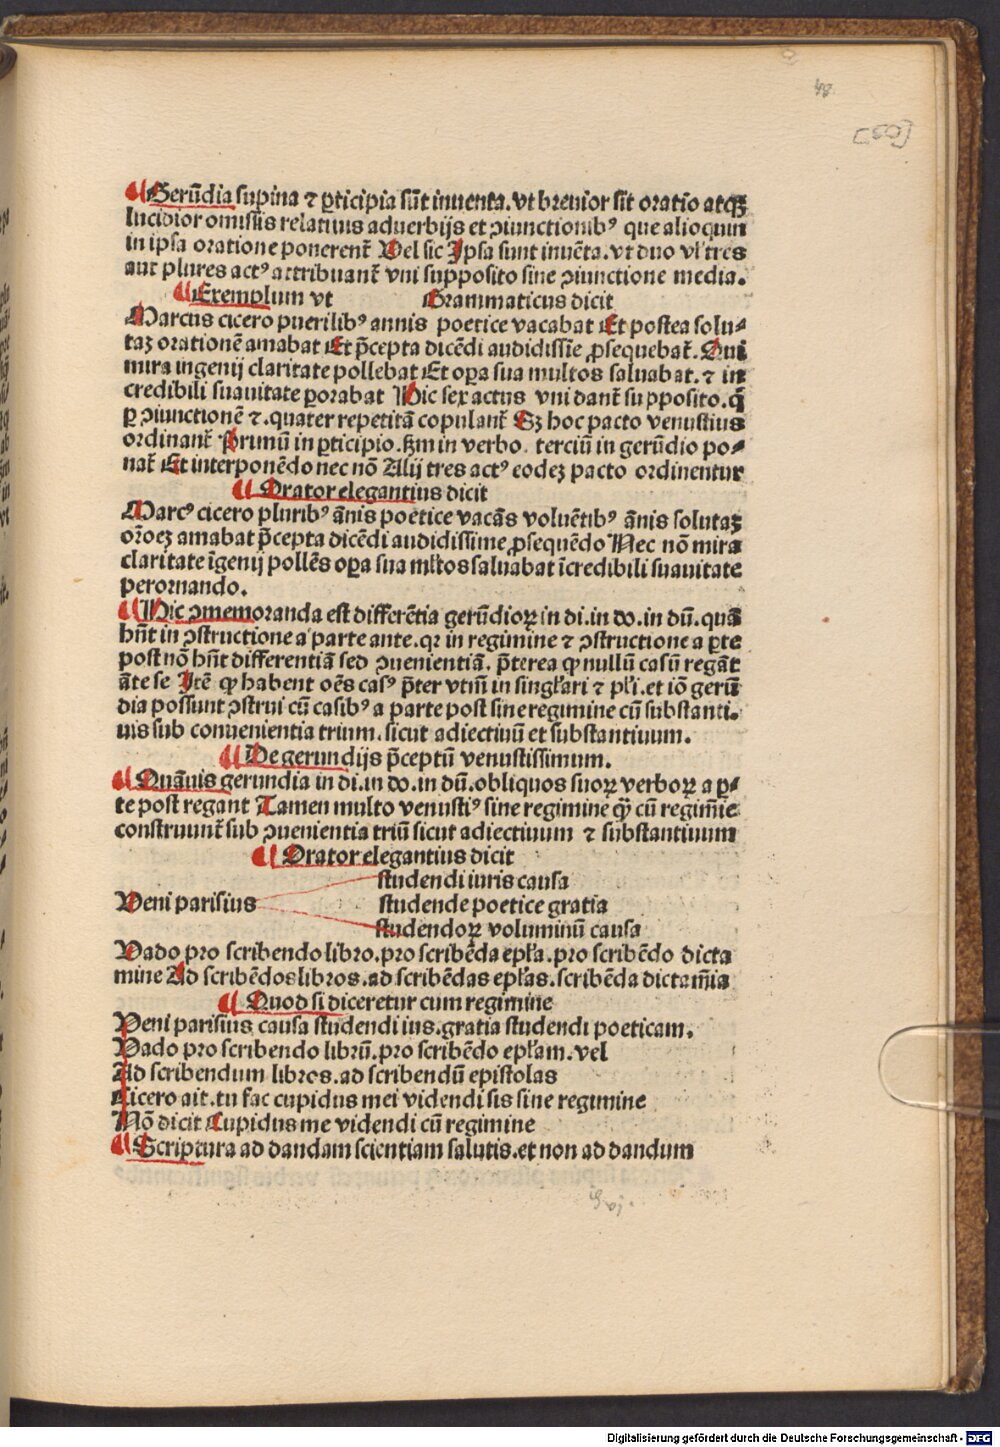 48
[50]
¶ Gerūdia supina ⁊ ꝑticipia sūt inuenta. vt breuior sit oratio atqꝫ
lucidior omissis relatiuis aduerbijs et ↄiunctionibꝰ que alioquin
in ipsa oratione ponerent᷑ Vel sic Ipsa sunt inuēta. vt duo vl' tres
aut plures actꝰ attribuant᷑ vni supposito sine ↄiunctione media.
¶ Exemplum vt Grammaticus dicit
Marcus cicero puerilibꝰ annis poetice vacabat Et postea solu⸗
taꝫ orationē amabat Et p̄cepta dicēdi audidissīe ꝓsequebat᷑. Qui
mira ingenij claritate pollebat Et oꝑa sua multos saluabat. ⁊ in
credibili suauitate ꝑorabat Hic sex actus vni dant᷑ supposito. q̄
ꝑ ↄiunctionē ⁊. quater repetitā copulant᷑ Sꝫ hoc pacto venustius
ordinant᷑ Primū in ꝑticipio. scḋm in verbo. terciū in gerūdio po⸗
nat᷑ Et interponēdo nec nō Alij tres actꝰ eodeꝫ pacto ordinentur
¶ Orator elegantius dicit
Marcꝰ cicero pluribꝰ ānis poetice vacās voluētibꝰ ānis solutaꝫ
orōeꝫ amabat p̄cepta dicēdi audidissime ꝓsequēdo Nec nō mira
claritate īgenij pollēs oꝑa sua ml'tos saluabat īcredibili suauitate
perornando.
¶ Hic ↄmemoranda est differētia gerūdioꝝ in di. in do. in dū. quā
hn̄t in ↄstructione a parte ante. qꝛ in regimine ⁊ ↄstructione a ꝑte
post nō hn̄t differentiā sed ↄuenientiā. p̄terea ꝙ nullū casū regāt
āte se Itē ꝙ habent oēs casꝰ p̄ter vtm̄ in singl'ari ⁊ pl'i. et iō gerū
dia possunt ↄstrui cū casibꝰ a parte post sine regimine cū substanti.
uis sub conuenientia trium. sicut adiectiuū et substantiuum.
¶ De gerundijs p̄ceptū venustissimum.
¶ Quāuis gerundia in di. in do. in dū. obliquos suoꝝ verboꝝ a ꝑ⸗
te post regant Tamen multo venustiꝰ sine regimine qꝫ̄ cū regim̄ie
construunt᷑ sub ↄuenientia triū sicut adiectiuum ⁊ substantiuum
¶ Orator elegantius dicit
studendi iuris causa
Veni parisius studende poetice gratia
studendoꝝ voluminū causa
Vado pro scribendo libro. pro scribēda epl'a. pro scribēdo dicta
mine Ad scribēdos libros. ad scribēdas epl'as. scribēda dictam̄ia
¶ Quod si diceretur cum regimine
Veni parisius causa studendi ius. gratia studendi poeticam.
Vado pro scribendo librū. pro scribēdo epl'am. vel
Ad scribendum libros. ad scribendū epistolas
Cicero ait. tu fac cupidus mei videndi sis sine regimine
Nō dicit Cupidus me videndi cū regimine
¶ Scriptura ad dandam scientiam salutis. et non ad dandum
Digitalisierung gefördert durch die Deutsche Forschungsgemeinschaft - DFG